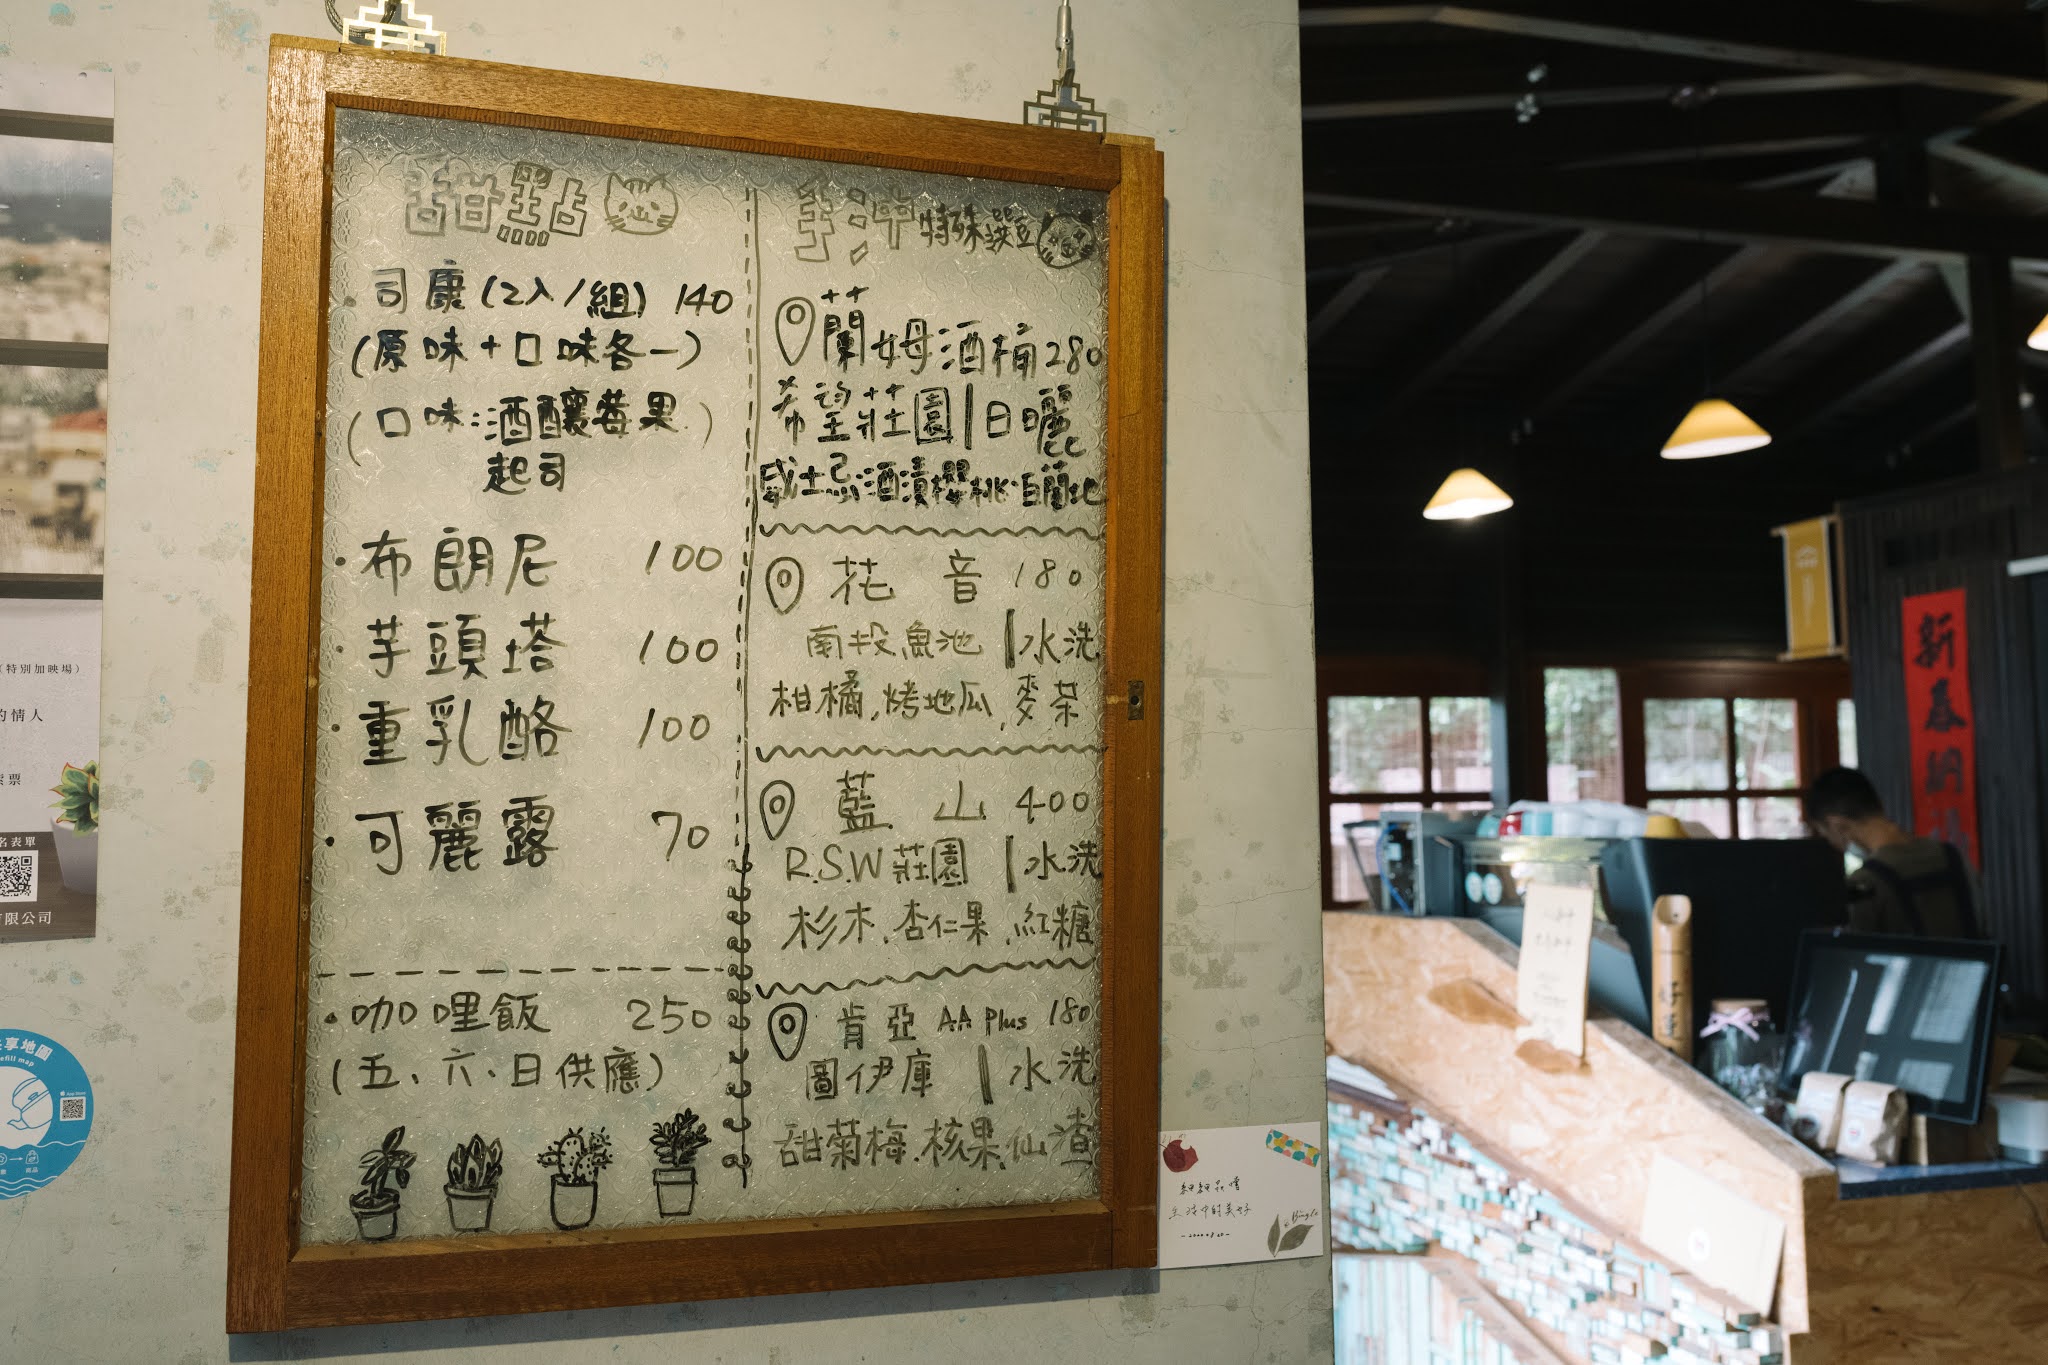 甜點
・司康(2入/組) 140
(原味+口味各一)
(口味:酒釀莓果、
起司)
・布朗尼 100
・芋頭塔 100
・重乳酪 100
・可麗露 70
・咖哩飯 250
(五、六、日供應)
手沖 特殊豆
蘭姆酒桶 280
希望莊園|日曬
威士忌酒漬櫻桃、白蘭地
花音 180
南投魚池|水洗
柑橘,烤地瓜,麥茶
藍山 400
R.S.W莊園|水洗
杉木,杏仁果,紅糖
肯亞 AA Plus 180
圖伊庫|水洗
甜菊梅.核果.仙渣
(特別加映場)
的情人
票
名表單
有限公司
享地圖
efill map
新春